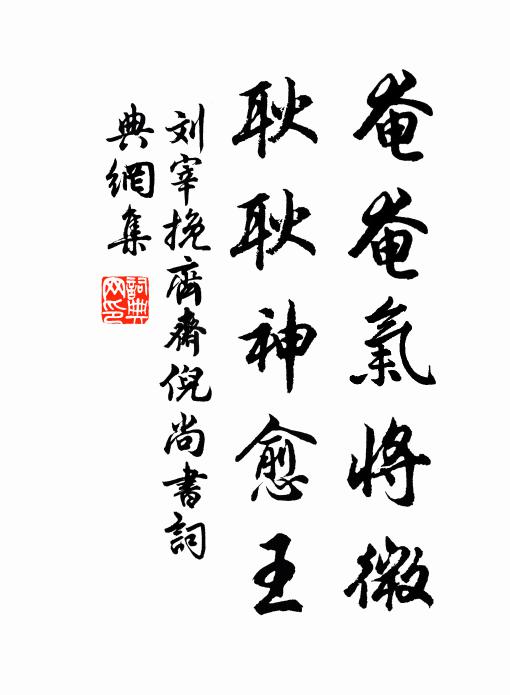 奄奄氣將微
耿耿神愈王
刘宰挽齊齋倪尚書詞
典網集
詞典網印